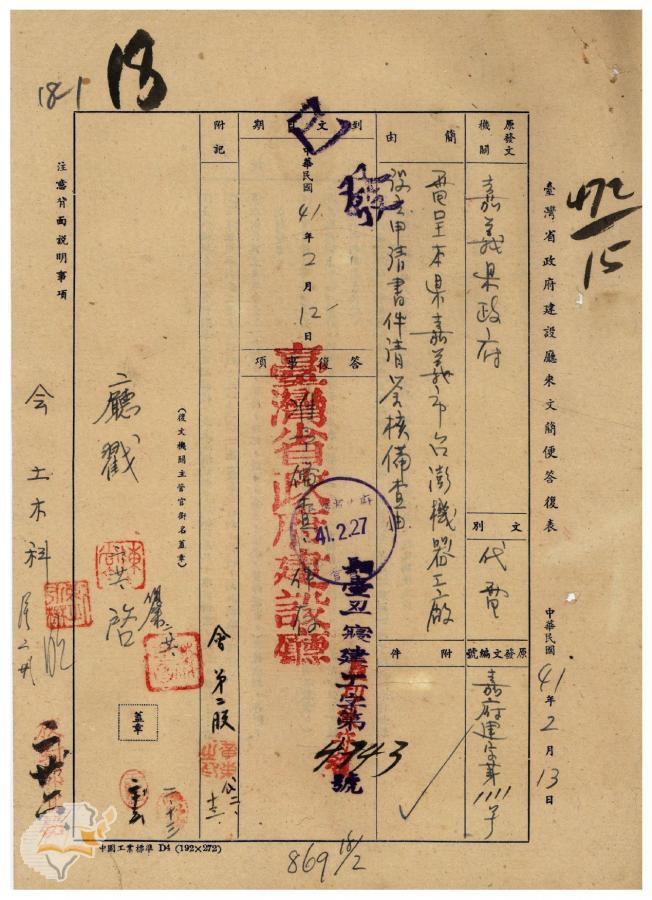 18-1
18
472
15
臺灣省政府建設廳來文簡便答復表
中華民國41年2月13日
原發文機關
嘉義県政府
文別
代電
原發文編號
嘉府建字第1111号
簡由
費呈本県嘉義市台澎機器工廠
設立申請書件請鑒核備查由
附件
到文日期
中華民國41年2月12日
已發
答復事項
准予備查、件存
臺灣省政府建設廳
41.2.27
建工字第4743號
附記
會第二股
(復文機關主管官銜名蓋章)
廳戳
蓋章
會土木科
注意背面說明事項
中國工業標準 D4 (192×272)
869 18/2